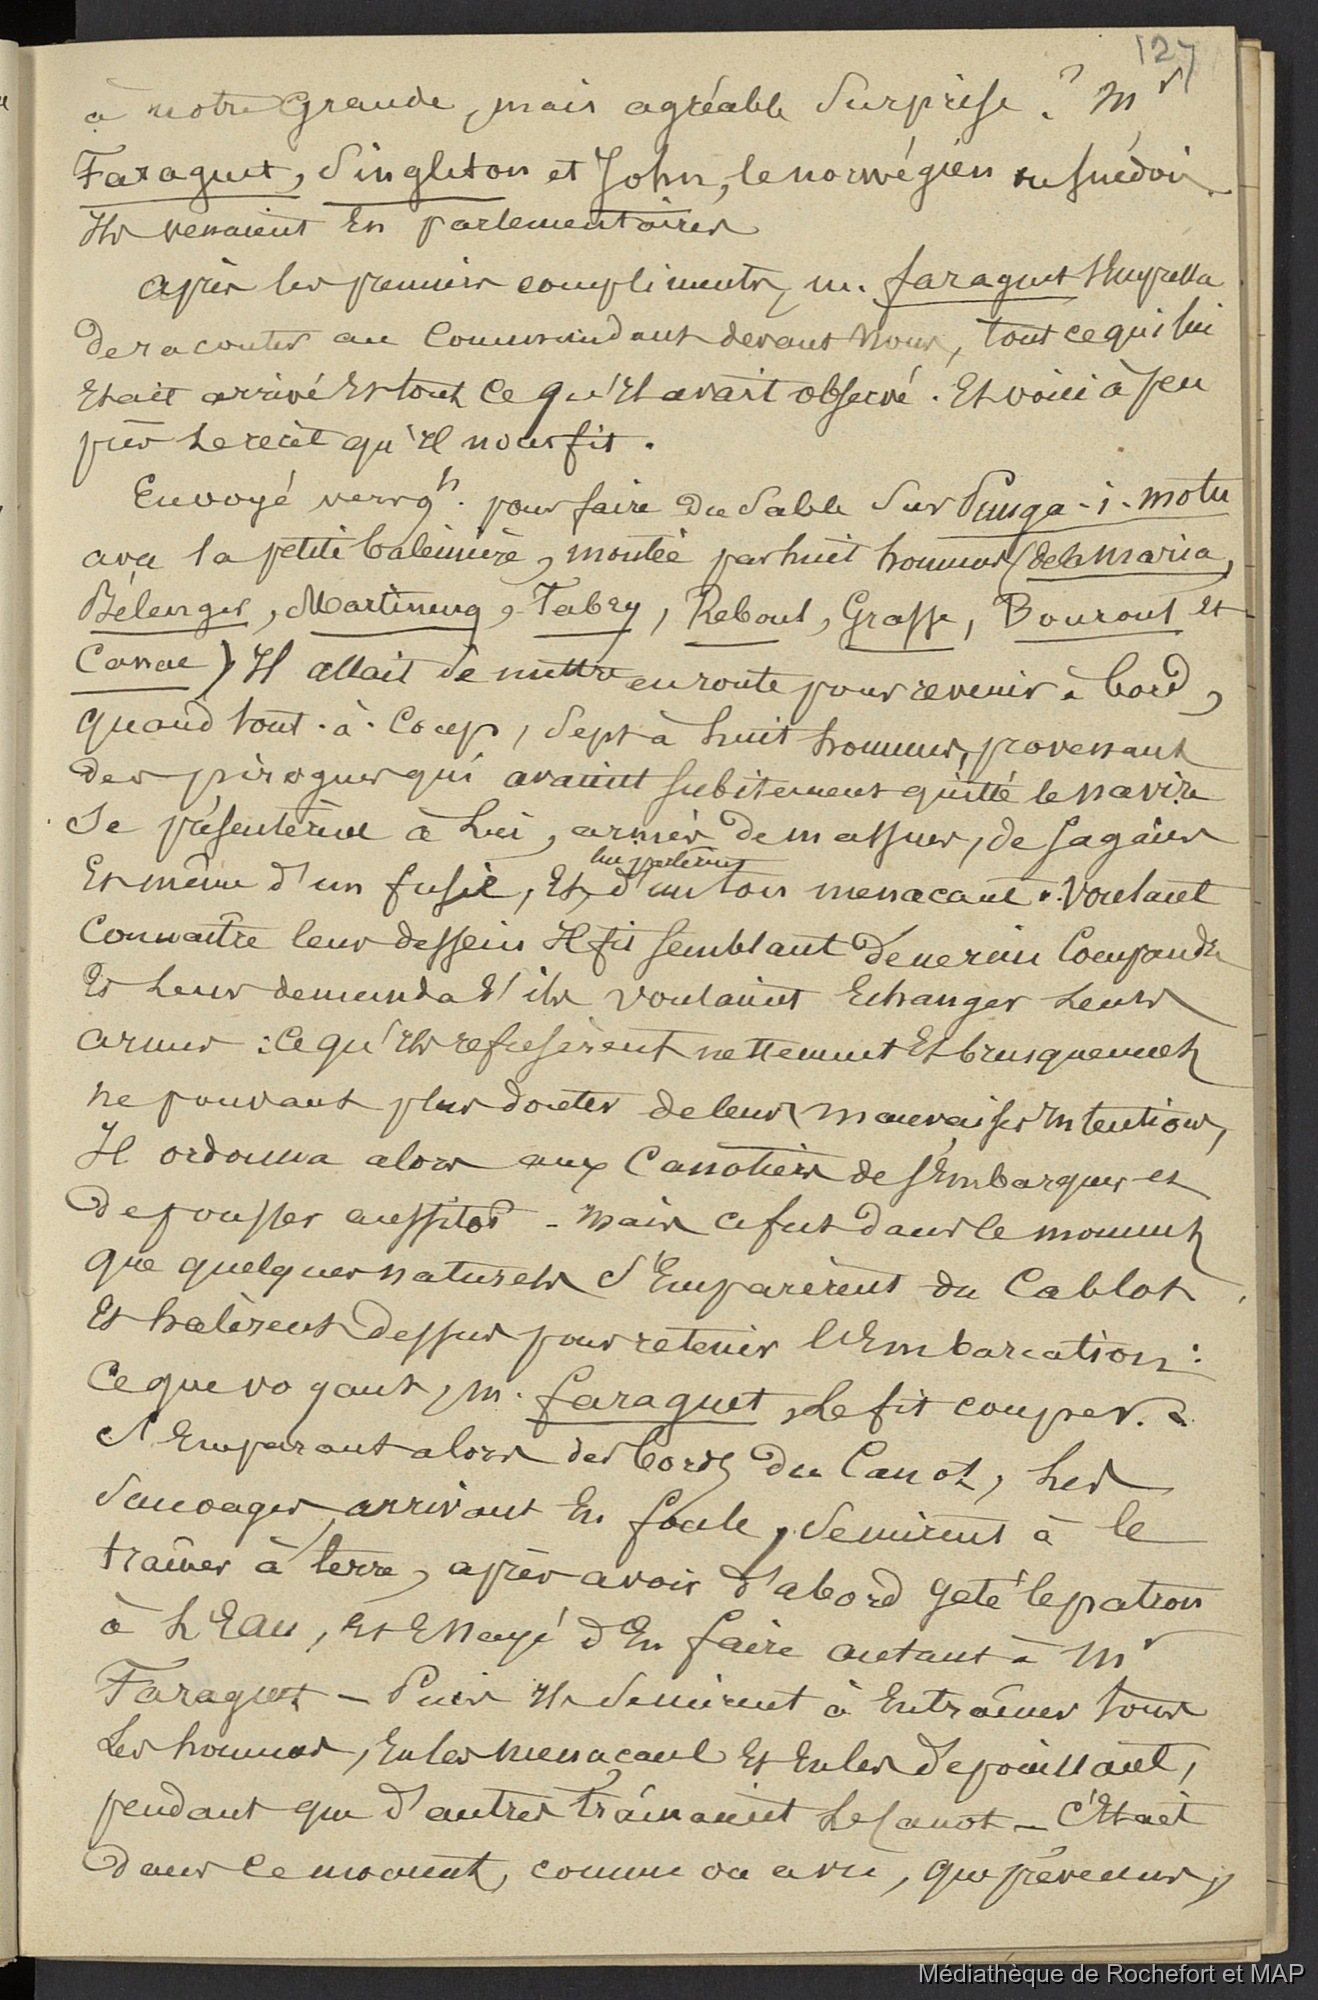 127
à notre Grande, mais agréable Surprise. ? Mr
Faraguet, Singleton et John, le norwégien ou suédois.
Ils venaient En parlementaires
après les premiers compliments, m. faraguet s'Empressa
de raconter au Commandant devant Nous, tout ce qui lui
Etait arrivé Et tout Ce qu'Il avait observé. Et voici à peu
près Le recit qu'Il nous fit.
Envoyé vers 9h. pour faire Du Sable Sur Punga-i-motu
avec la petite baleinière, montée par huit hommes (de la Maria,
Bélenger, Martineng, Fabry, Reboul, Grasse, Bourout Et
Canac), Il allait se mettre en route pour revenir à bord,
quand tout-à-Coup, Sept à huit hommes, provenant
des pirogues qui avaient subitement quitté le navire
Se présentèrent à Lui, armés de massues, de sagaies
Et même d'un fusil, Et, lui parlèrent d'un ton menacant. Voulant
Connaitre leur dessein Il fit semblant de ne rien Comprendre
Et Leur demanda s'ils voulaient Echanger Leurs
armes : Ce qu'Ils refusèrent nettement Et brusquement
ne pouvant plus douter de leurs mauvaises Intentions,
Il ordonna alors aux Canotiers de s'Embarquer et
De pousser aussitôt - Mais ce fut dans le moment
que quelques naturels S'Emparèrent du Cablot
Et halèrent dessus pour retenir l'Embarcation :
Ce que voyant, m. faraguet, Le fit couper.
S'Emparant alors des bords du Canot, Les
Sauvages arrivant En foule, se mirent à le
traîner à terre, après avoir d'abord geté le patron
à L'Eau, Et Essayé d'En faire autant à Mr
Faraguet - Puis Ils se mirent à Entraîner tous
Les hommes, En les menaçant Et En les dépouillant,
pendant que d'autres traînaient Le Canot - C'Etait
dans ce moment, comme on a vu, que prévenus,
Médiathèque de Rochefort et MAP